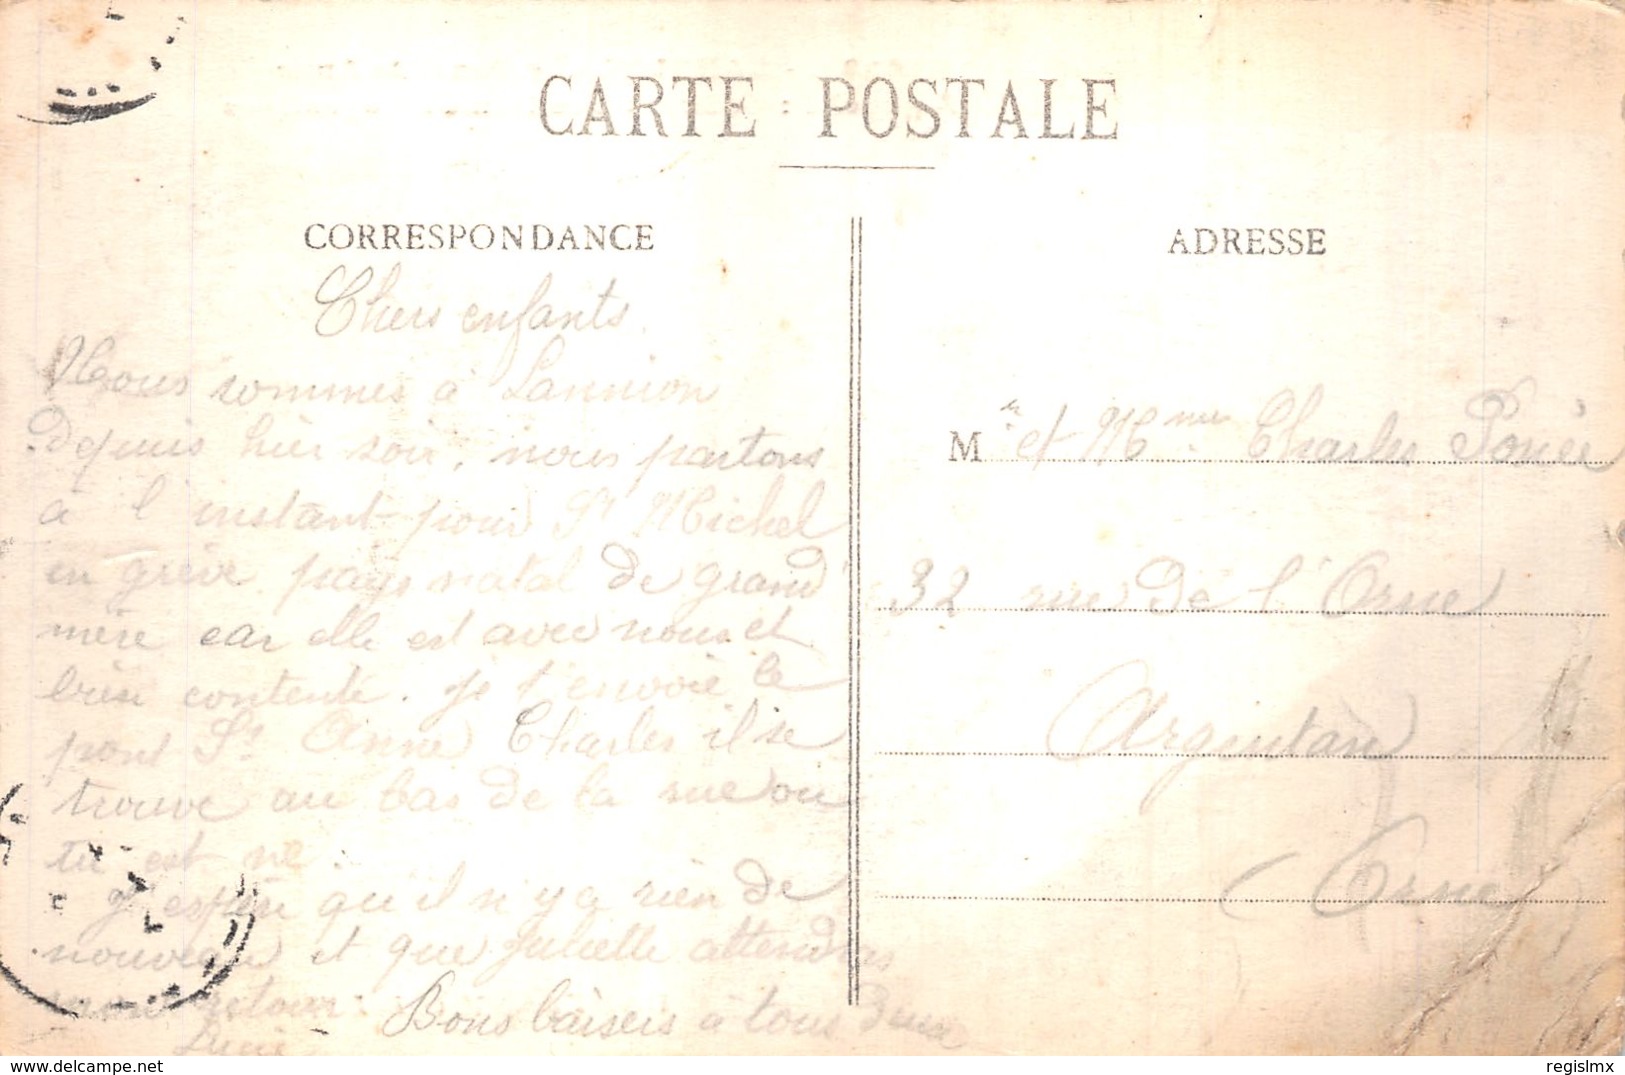 CARTE POSTALE
CORRESPONDANCE
Chers enfants
Nous sommes à Lannion
depuis hier soir, nous partons
à l'instant pour St Michel
en grève pays natal de grand
mère car elle est avec nous et
bien contente. Je t'envoie le
pont St Anne Charles il se
trouve au bas de la rue ou
tu est né.
J'espère qu'il n'y a rien de
nouveau et que Julielle attendras
mon retour.
Bons baisers à tous deux
Lucie
ADRESSE
Mr et Mme Charles
32 rue de l'Orne
Argentan
(Orne
delcampe.net
regislmx